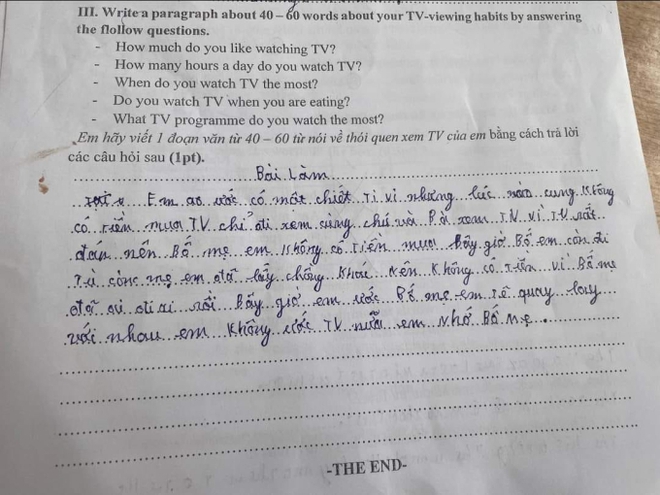 III. Write a paragraph about 40 – 60 words about your TV-viewing habits by answering
the flollow questions.
- How much do you like watching TV?
- How many hours a day do you watch TV?
- When do you watch TV the most?
- Do you watch TV when you are eating?
- What TV programme do you watch the most?
Em hãy viết 1 đoạn văn từ 40 – 60 từ nói về thói quen xem TV của em bằng cách trả lời
các câu hỏi sau (1pt).
Bài Làm
Em ao ước có một chiết Ti vi nhưng lúc nào cung không
có tiền mua TV chỉ đi xem cùng chú và Bà xem TV vì TV rất
đắn nên Bố mẹ em không có tiền mua bây giờ Bố em còn đi
Tù còng mẹ em đã lấy chồng khác nên không có tiền vì Bố mẹ
đã rồi Bây giờ em ước Bố mẹ em quay lay
với nhau em không ước TV nữa em nhớ Bố Mẹ
-THE END-